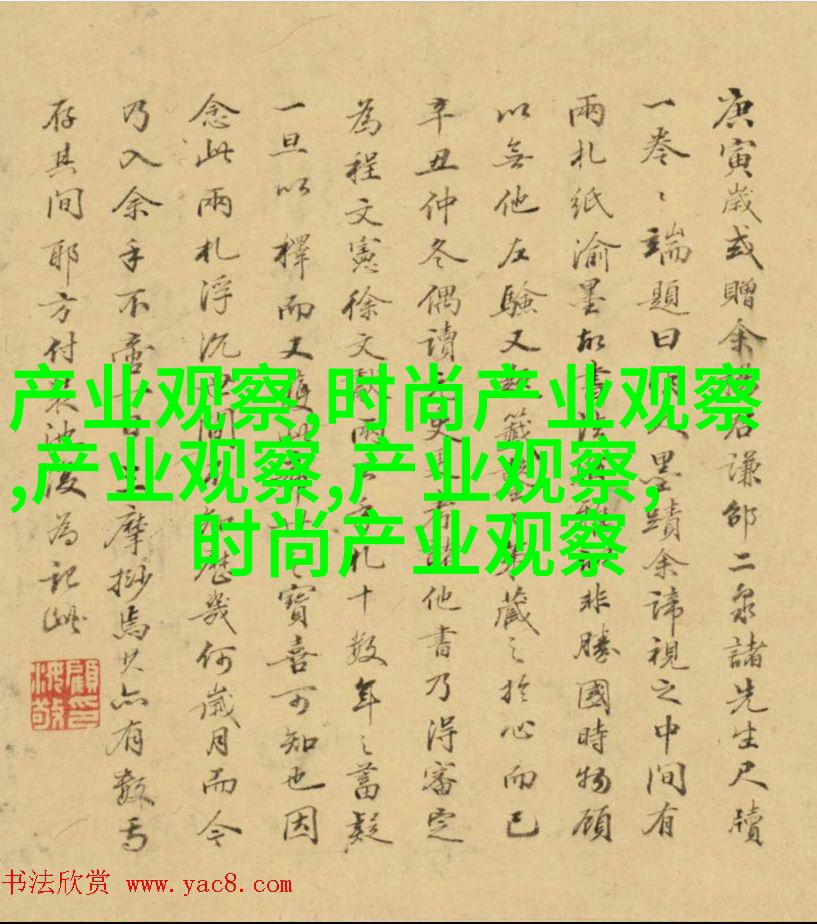 庚寅歲或贈余君謙邵二泉諸先生尺牘
一卷〻端題曰人墨蹟余諦視之中間有
兩札紙渝墨故書法非勝國時物顧
以無他左驗又籤藏〻於心而已
辛丑仲冬偶讀史他書乃得審定
為程文憲徐文獻兩札十數年〻蓄疑
一旦以釋而又獲寶喜可知也因
念此兩札浮沉間知歷幾何歲月而今
乃入余手不啻摩抄焉其亦有數焉
存其間耶方付裝池為記此
产业观察,时尚产业观察
,产业观察,产业观察,
时尚产业观察
书法欣赏 www.yac8.com